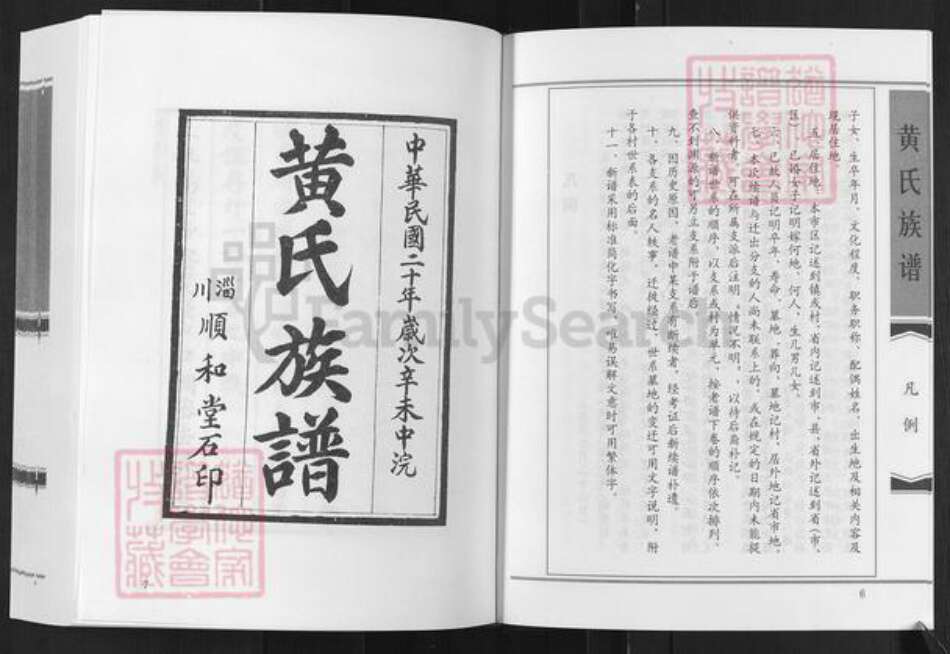 子女、生卒年月、文化程度、职务职称、配偶姓名、出生地及相关内容及
现居住地。
五、居住地,本市区记述到镇或村、省内记述到市、县、省外记述到省(市、
区)。已婚女子记明嫁何地、何人、生几男几女。
六、已故人员记明卒年、寿命、墓地、葬向、墓地记村、居外地记省市地。
七、本次续谱与迁出分支的人尚未联系上的,或在规定的日期内未能提
供资料者,可在所属支派后注明“情况不明”,以待后裔补记。
八、新谱世系的顺序,以支系或村为单元,按老谱下卷的顺序依次排列、
查不到渊源的可另立支系附于谱后。
九、因历史原因,老谱中某支系有断续者,经考证后新续谱补遗。
十、各支系的名人轶事,迁徙经过,世系墓地的变迁可用文字说明,附
于各村世系表的后面。
十一、新谱采用标准简化字书写,唯易误解文意时可用繁体字。
黄氏族谱
凡例
6
中華民國二十年歲次辛未中浣
黄氏族譜
淄川順和堂石印
7
FamilySearch